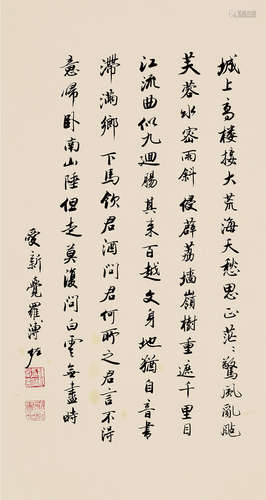 城上高楼接大荒海天愁思正茫々驚風亂飐
芙蓉水密雨斜侵薜荔墻嶺樹重遮千里目
江流曲似九迴腸其来百越文身地猶自音書
滯滿鄉下馬飲君酒問君何所之君言不得
意歸卧南山陲但走莫復問白雲無盡時
愛新覺羅溥佐